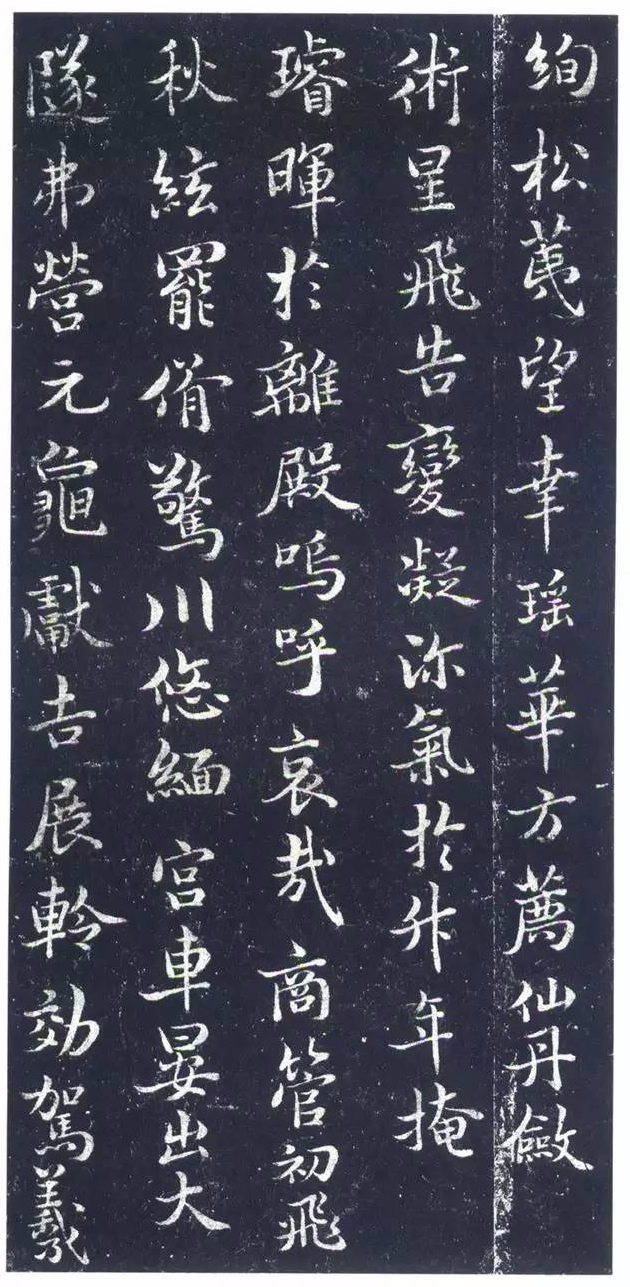 絢松荑望幸瑶華方薦仙丹斂
術星飛告變凝沴氣於升年掩
璿暉於離殿嗚呼哀哉商管初飛
秋絃罷脩驚川悠緬宮車晏出大
隧弗營元龜獻吉展軨効駕羲